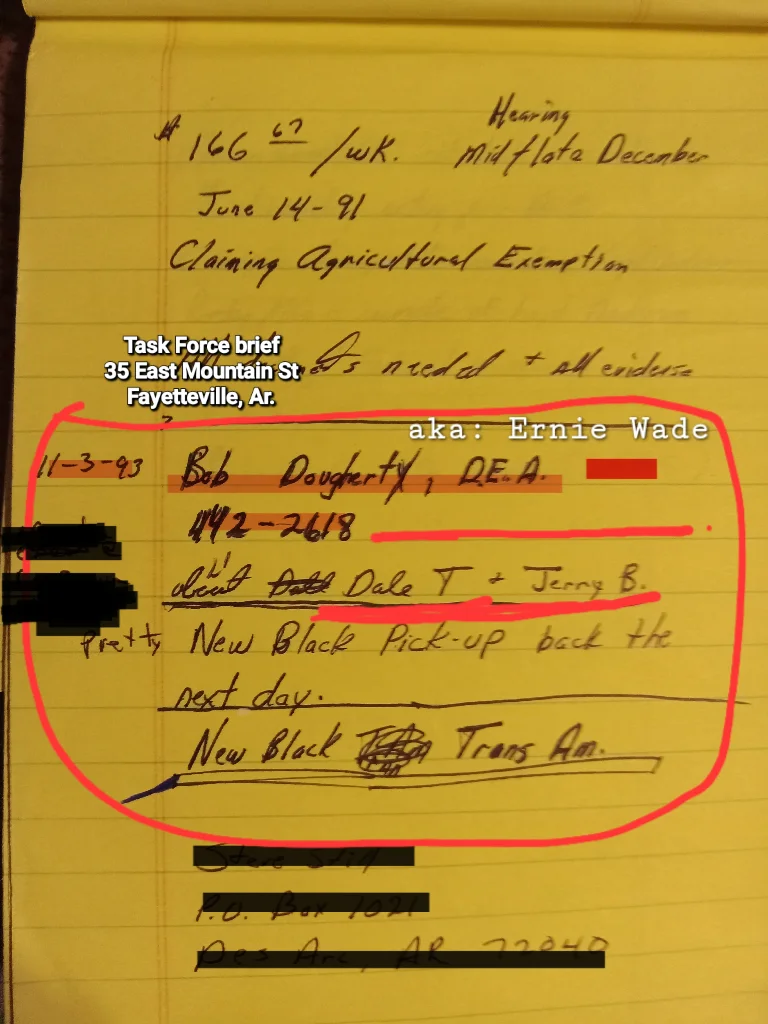 Hearing
$166 67 /wk. Mid / late December
June 14-91
Claiming Agricultural Exemption
Task Force brief
35 East Mountain St
Fayetteville, Ar.
needed + all evidense
aka: Ernie Wade
11-3-93 Bob Dougherty, D.E.A.
442-2618
about Dale T + Jerry B.
Pretty New Black Pick-up back the
next day.
New Black Trans Am.